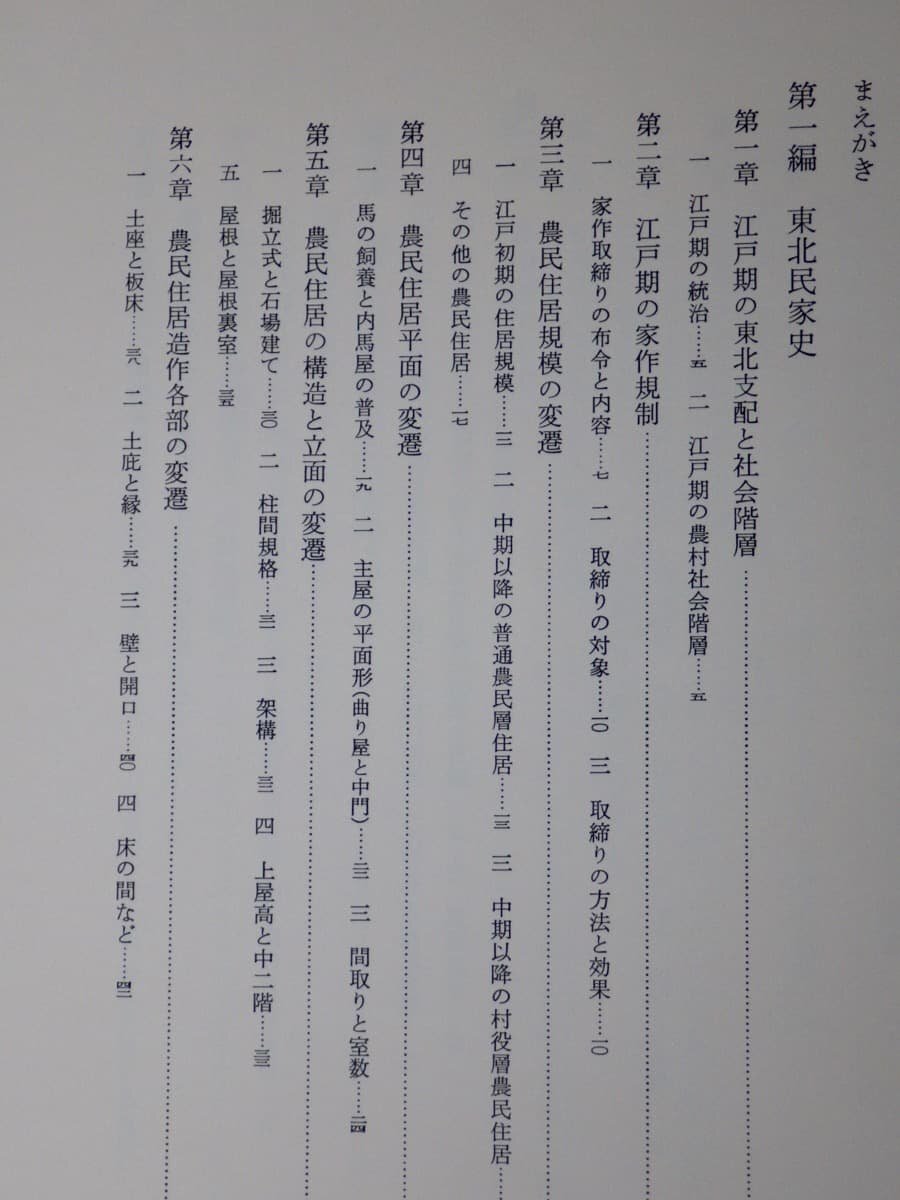 まえがき
第一編　東北民家史
第一章　江戸期の東北支配と社会階層……
一　江戸期の統治……五　二　江戸期の農村社会階層……五
第二章　江戸期の家作規制……
一　家作取締りの布令と内容……七　二　取締りの対象……一〇　三　取締りの方法と効果……一〇
第三章　農民住居規模の変遷……
一　江戸初期の住居規模……一三　二　中期以降の普通農民層住居……一三　三　中期以降の村役層農民住居……
四　その他の農民住居……一七
第四章　農民住居平面の変遷……
一　馬の飼養と内馬屋の普及……一九　二　主屋の平面形（曲り屋と中門）……二三　三　間取りと室数……二四
第五章　農民住居の構造と立面の変遷……
一　掘立式と石場建て……三〇　二　柱間規格……三一　三　架構……三二　四　上屋高と中二階……三三
五　屋根と屋根裏室……三五
第六章　農民住居造作各部の変遷……
一　土座と板床……三八　二　土庇と縁……三九　三　壁と開口……四〇　四　床の間など……四二